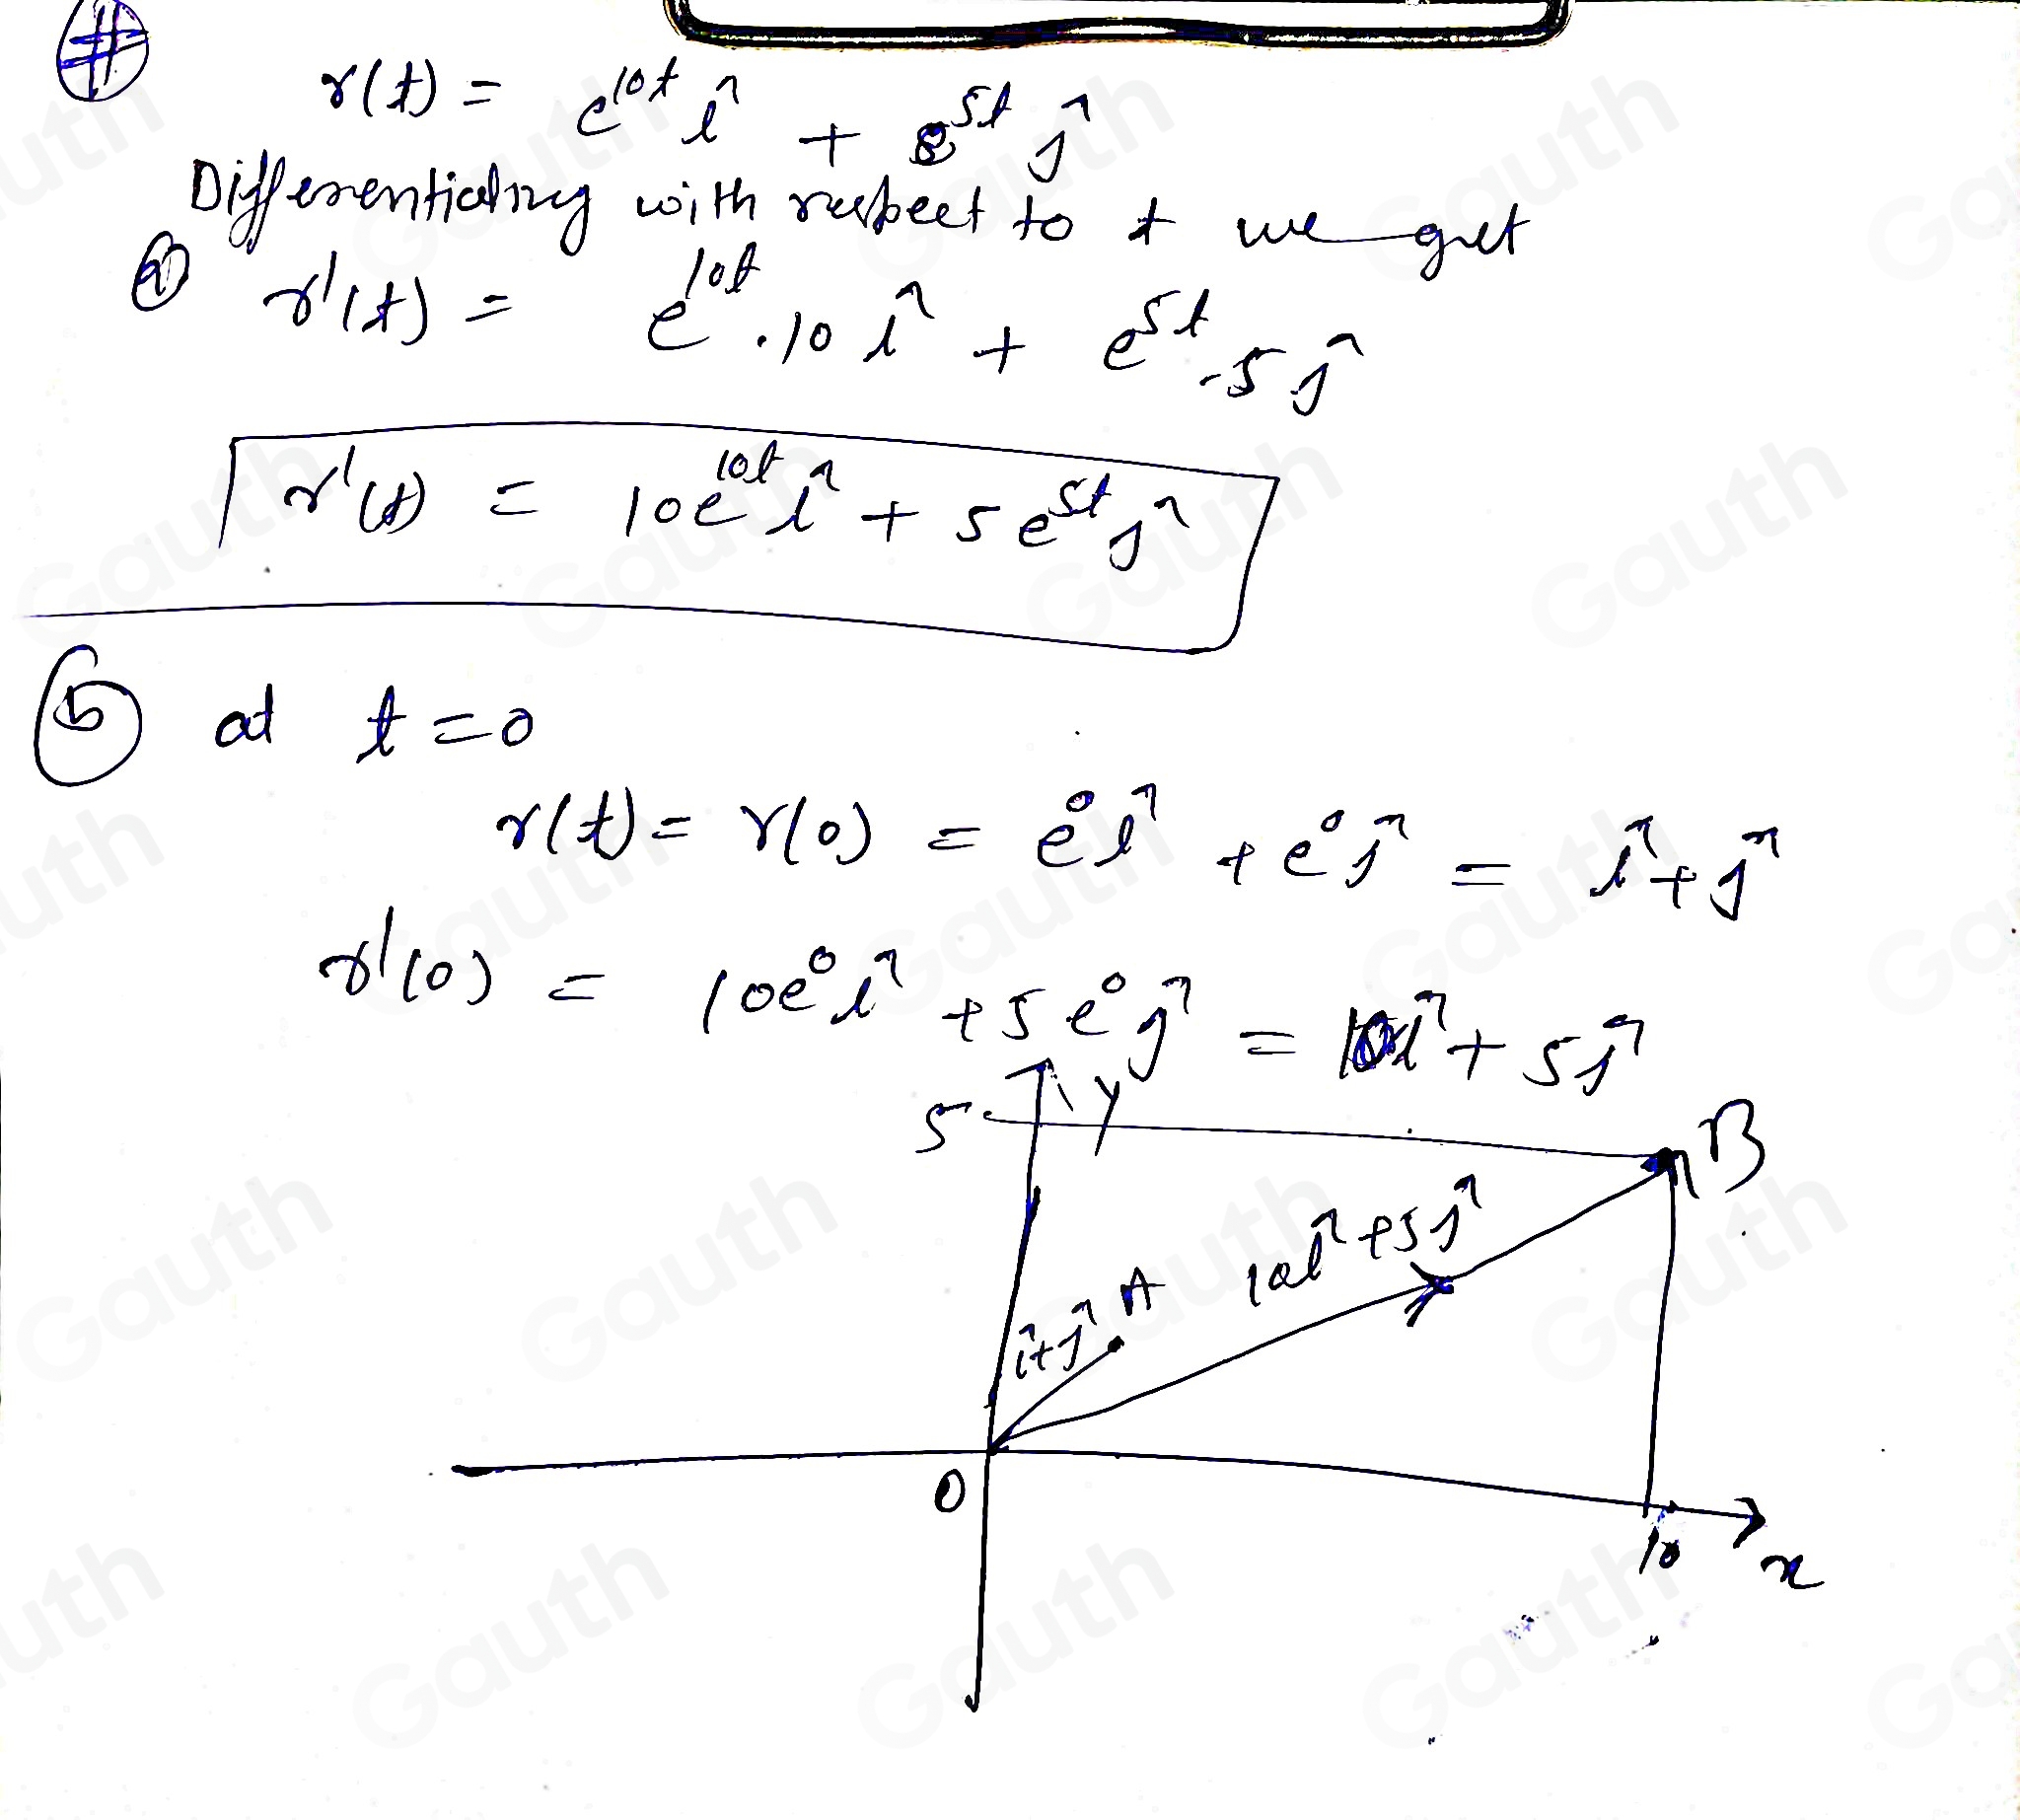 #
r(t) = e^{10t} î + e^{5t} ĵ
Differentiating with respect to t we get
ⓐ r'(t) = e^{10t} . 10 î + e^{5t} . 5 ĵ
r'(t) = 10e^{10t} î + 5 e^{5t} ĵ
ⓑ at t = 0
r(t) = r(0) = e^0 î + e^0 ĵ = î + ĵ
r'(0) = 10e^0 î + 5 e^0 ĵ = 10î + 5ĵ
y
5
B
10î + 5ĵ
A
î + ĵ
0
10
x
Gauth